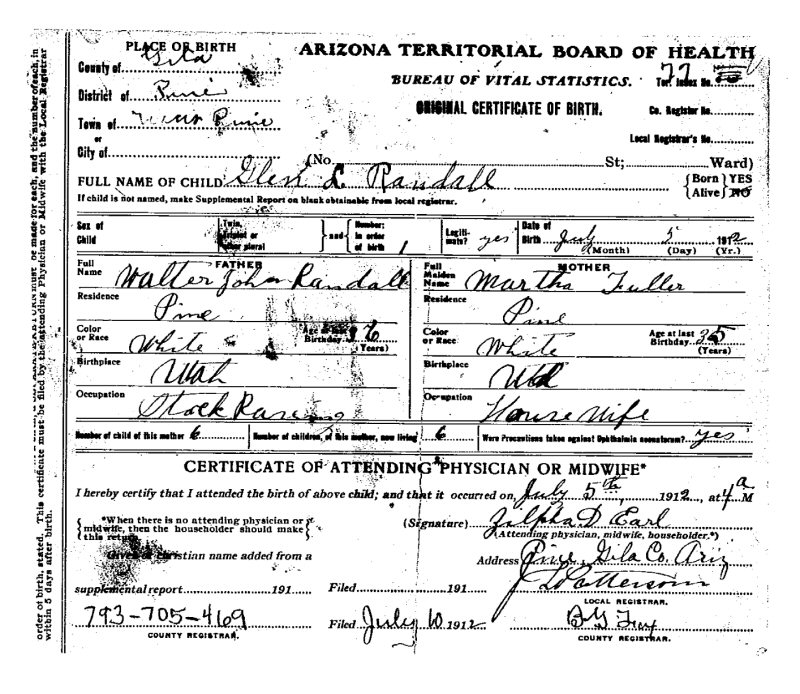 PLACE OF BIRTH
ARIZONA TERRITORIAL BOARD OF HEALTH
County of Gila
BUREAU OF VITAL STATISTICS.
Ter. Index No. 77
District of Pine
ORIGINAL CERTIFICATE OF BIRTH.
Co. Register No.
Town of Pine
or
Local Registrar's No.
City of
(No. St; Ward)
FULL NAME OF CHILD Glen L Randall
{Born } YES
{Alive } NO
If child is not named, make Supplemental Report on blank obtainable from local registrar.
Sex of Child
Twin, Triplet or other plural } and { Number: in order of birth 1
Legitimate? yes
Date of Birth July 5 1912
(Month) (Day) (Yr.)
FATHER
Full Name Walter John Randall
MOTHER
Full Maiden Name Martha Fuller
Residence Pine
Residence Pine
Color or Race White
Age at last Birthday 36 (Years)
Color or Race White
Age at last Birthday 35 (Years)
Birthplace Utah
Birthplace
Occupation Stock Rasing
Occupation House Wife
Number of child of this mother 6
Number of children, of this mother, now living 6
Were Precautions taken against Ophthalmia neonatorum? yes
CERTIFICATE OF ATTENDING PHYSICIAN OR MIDWIFE*
I hereby certify that I attended the birth of above child; and that it occurred on, July 5th, 1912, at 4 a M
{ *When there is no attending physician or midwife, then the householder should make this return. }
(Signature) Zilpha D Earl
(Attending physician, midwife, householder.*)
Given or christian name added from a
Address Pine, Gila Co. Ariz
supplemental report 191
Filed 191
J Patterson
LOCAL REGISTRAR.
793-705-469
COUNTY REGISTRAR.
Filed July 10 1912
B G Fox
COUNTY REGISTRAR.
must be made for each, and the number of each, in
order of birth, stated. This certificate must be filed by the attending Physician or Midwife with the Local Registrar
within 5 days after birth.